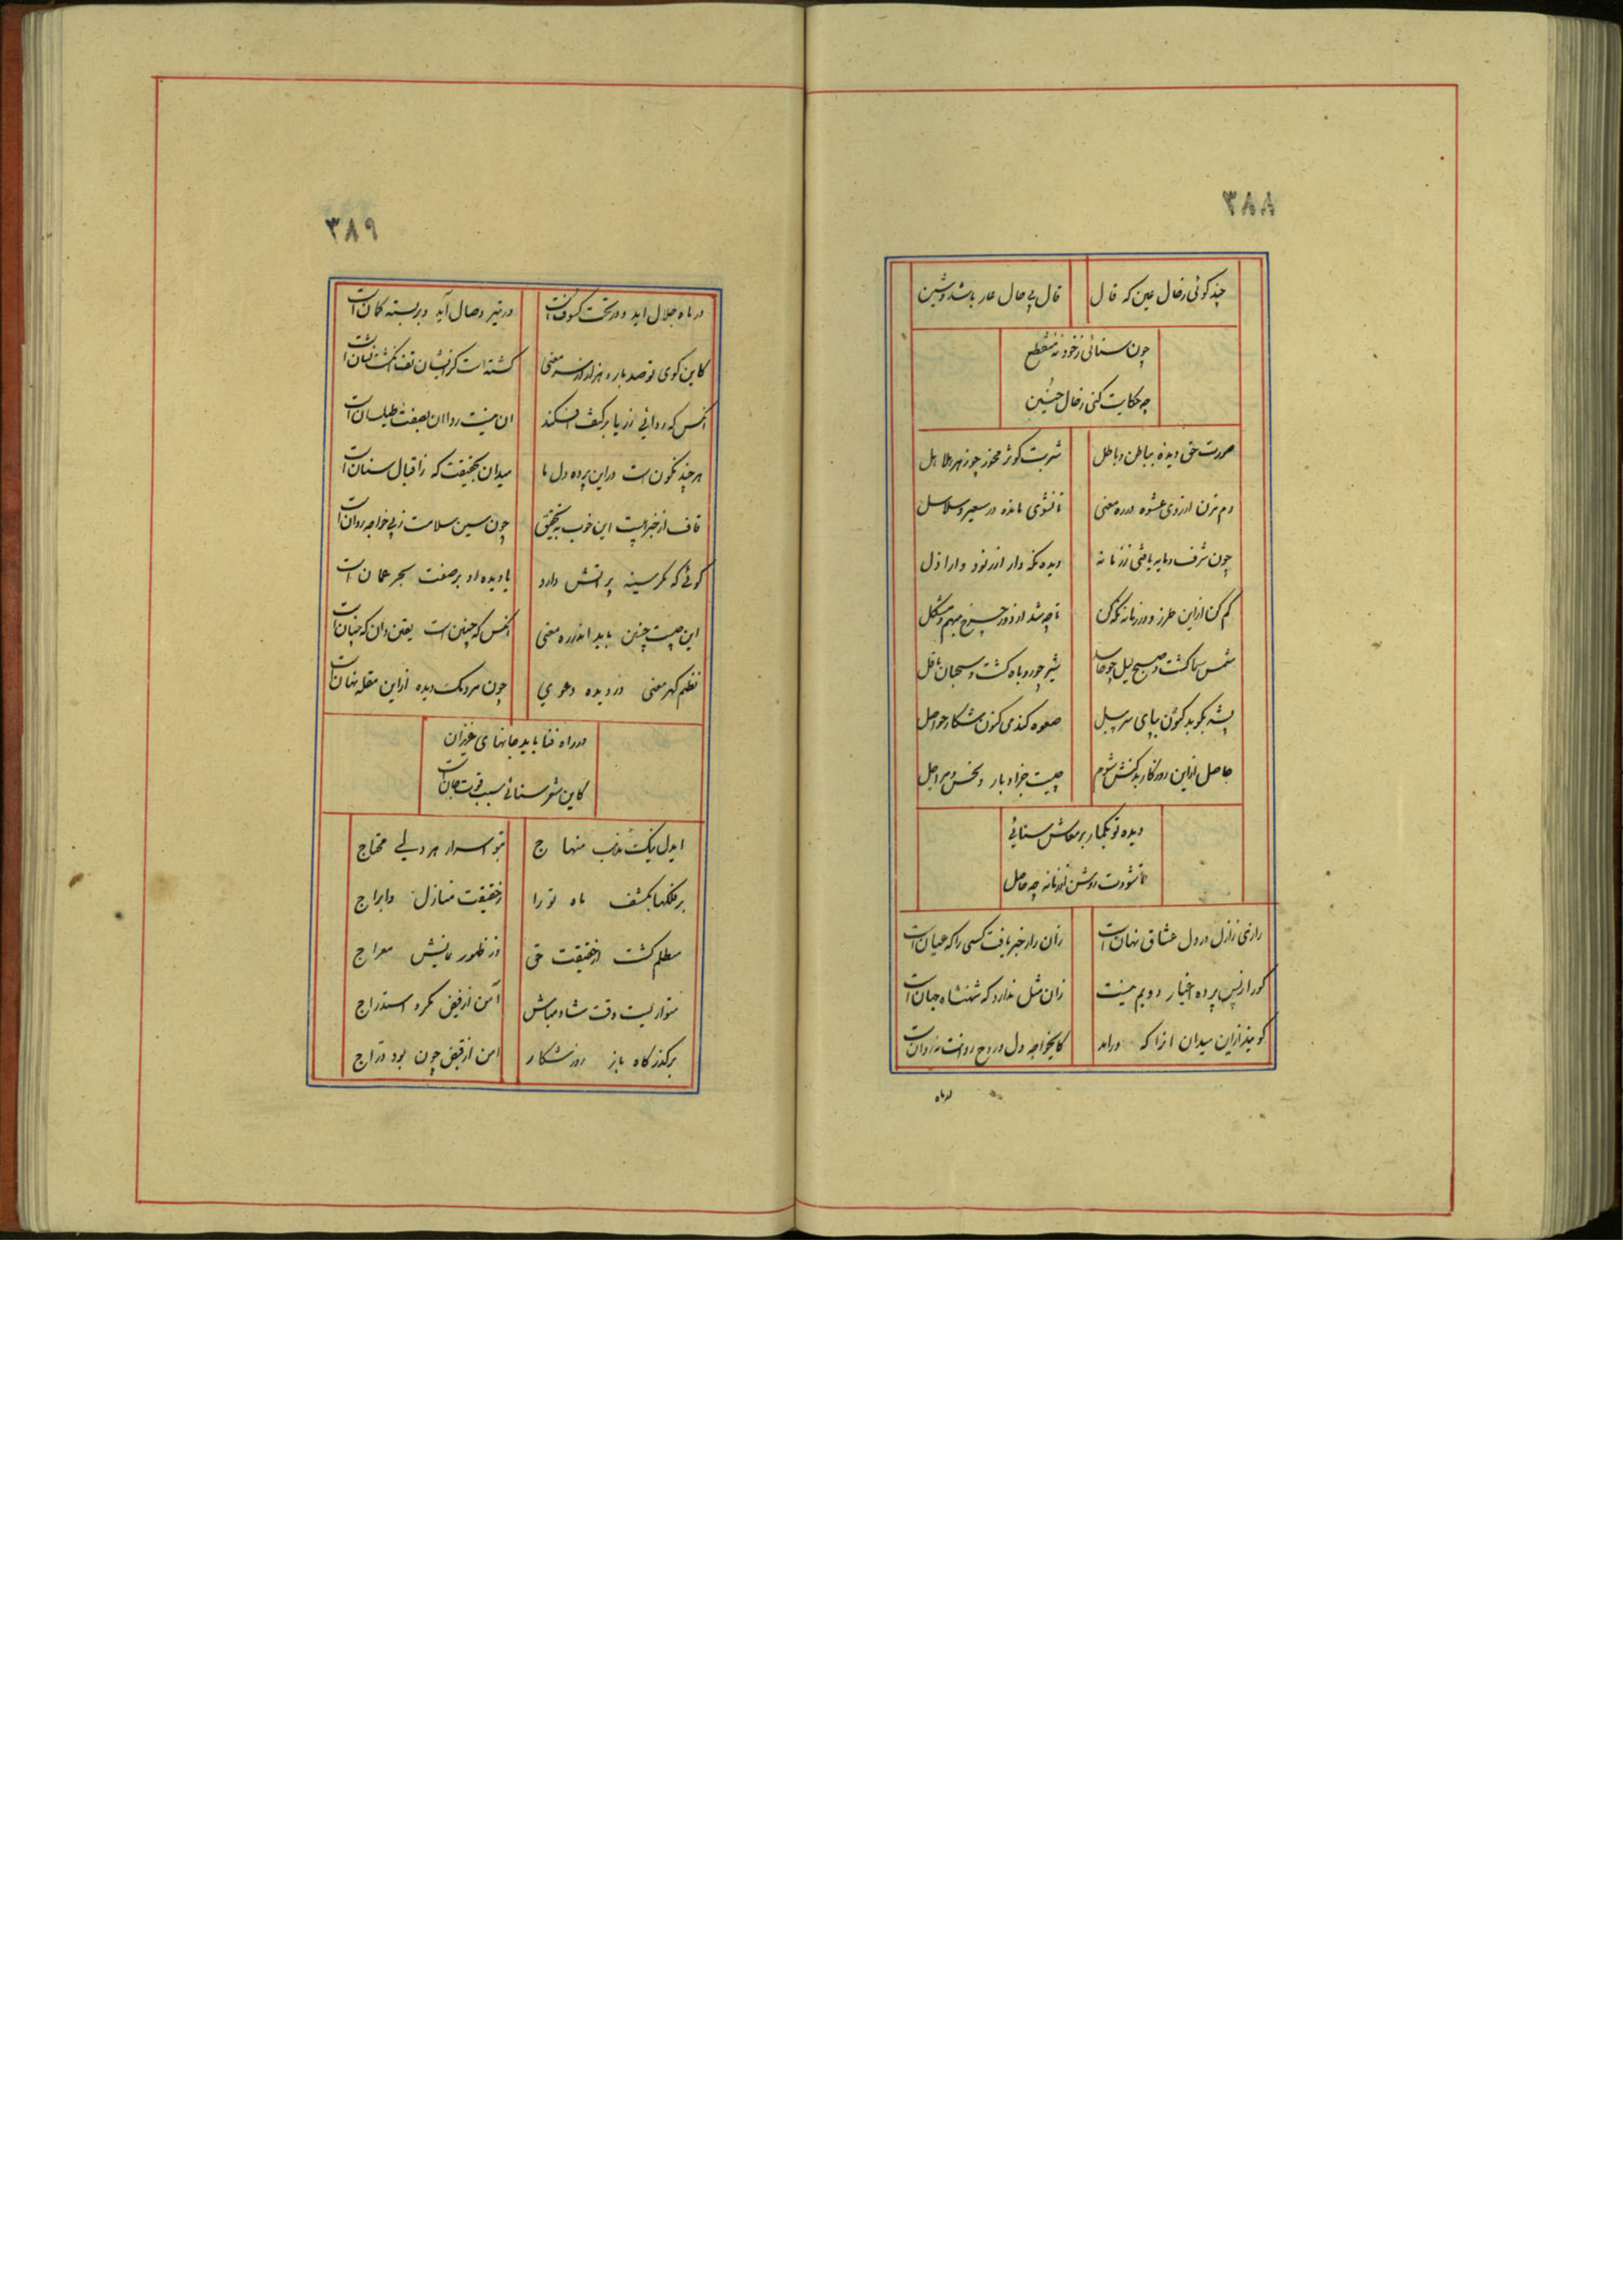 ۳۸۸
چند گوئی ز حال عین که قال
قال بی حال عار باشد و شین
چون سنائی ز خود نه منقطع
چه حکایت کنی ز حال حنین
صورت حق دیده بباطن و باطل
شربت کوثر مخور چو زهر هلاهل
دم مزن از روی عشوه در ره معنی
تا نشوی مانده در سعیر و سلاسل
چون شرف و مایه یافتی ز زمانه
دیده نگه دار از نرد و اراذل
کم کن از این طرز و در زمانه نگه کن
تا چه شد از دور چرخ مبهم و مشکل
شمس سها گشت و صبح لیل چو حاسد
شیر چو روباه گشت و سحبان باقل
پشه بکوبد کنون بپای سر پیل
صعوه کند می کنون شکار حواصل
حاصل از این روزگار بد کنش شوم
چیست جز ادبار و نحس و مر اجل
دیده تو بگمار بر معاش سنائی
تا شودت روشن از زمانه چه حاصل
رازی ز ازل در دل عشاق نهان است
زان راز خبر یافت کسی را که عیان است
کو را ز پس پرده اغیار دویم نیست
زان مثل ندارد که شهنشاه جهان است
گویند از این میدان انرا که درامد
کایخواجه دل و روح روانست نه روان است
در ماه
۳۸۹
در ماه جلال اید و در تحت کسوف است
در تیر وصال آید و بر بسته کمان است
کاین کوی تو صد باره هزار از سر معنی
گشته است کز ایشان تف انگشت نشان است
انکس که ردائی ز ریا بر کتف افکند
ان نیست ردا ان بصفت طیلسان است
هر چند نگون است در این پرده دل ما
میدان بحقیقت که ز اقبال سنان است
قاف از خبر هیبت این خوب به تحقیق
چون سین سلامت ز پی خواجه روان است
گوئی که مگر سینه پر اتش دارد
یا دیده او بر صفت بحر عمان است
این چیست چنین باید اندر ره معنی
انکس که چنین است یقین دان که چنان است
نظم گهر معنی در دیده دعوی
چون مردمک دیده از این مقله نهان است
در راه فنا باید جانهای عزیزان
کاین شعر سنائی سبب قوت جان است
ایدل نیک مذهب منهاج
تو اسرار هر دلی محتاج
بر فلکها بکشف ماه ترا
ز حقیقت منازل و ابراج
مطلع گشت از حقیقت حق
در ظهور نمایش معراج
متواریست وقت شاد مباش
آمن از فیض مکر و استدراج
بر گذرگاه باز روز شکار
امن از قبض چون بود دراج